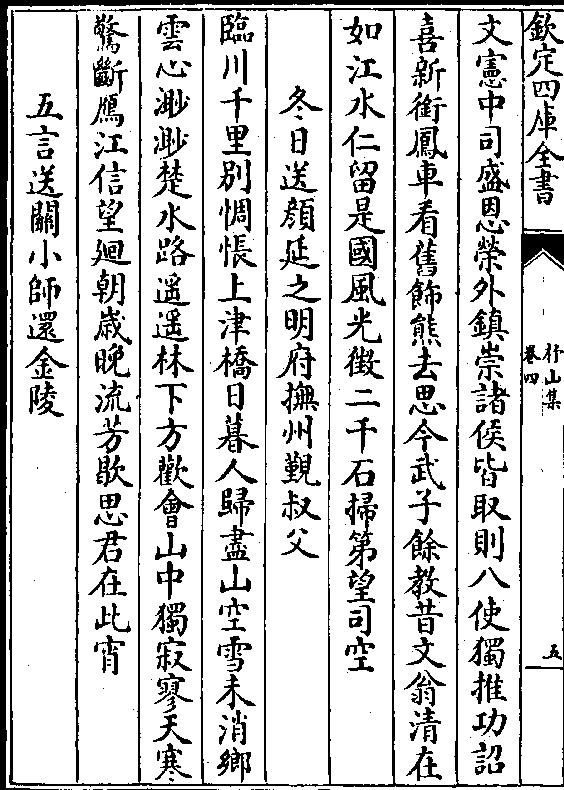 欽定四庫全書
杼山集
卷四
五
文憲中司盛恩榮外鎮崇諸侯皆取則八使獨推功詔
喜新銜鳳車看舊飾熊去思今武子餘教昔文翁清在
如江水仁留是國風光徴二千石掃第望司空
冬日送顔延之明府撫州覲叔父
臨川千里别惆悵上津橋日暮人歸盡山空雪未消鄉
雲心渺渺楚水路遥遥林下方歡會山中獨寂寥天寒
驚斷鴈江信望廻朝歲晚流芳歇思君在此宵
五言送關小師還金陵